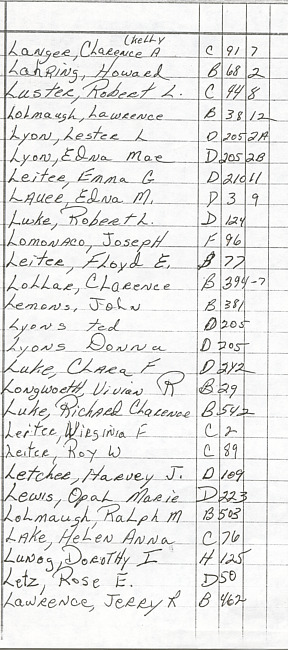 (Kelly
Langer, Clarence A C 91 7
Lahring, Howard B 68 2
Luster, Robert L. C 44 8
Lolmaugh, Lawrence B 38 12
Lyon, Lester L D 205 2A
Lyon, Edna Mae D 205 2B
Leiter, Emma G D 210 11
Lauer, Edna M. D 3 9
Luke, Robert L. D 124
Lomonaco, Joseph F 96
Leiter, Floyd E. B 77
Lollar, Clarence B 394-7
Lemons, John B 381
Lyons Ted D 205
Lyons Donna D 205
Luke, Clara F D 242
Longworth, Vivian R B 29
Luke, Richard Clarence B 542
Leiter, Virginia F C 2
Leiter, Roy W C 89
Letcher, Harvey J. D 109
Lewis, Opal Marie D 223
Lolmaugh, Ralph M B 503
Lake, Helen Anna C 76
Lunog, Dorothy I H 125
Letz, Rose E. D 50
Lawrence, Jerry R B 462